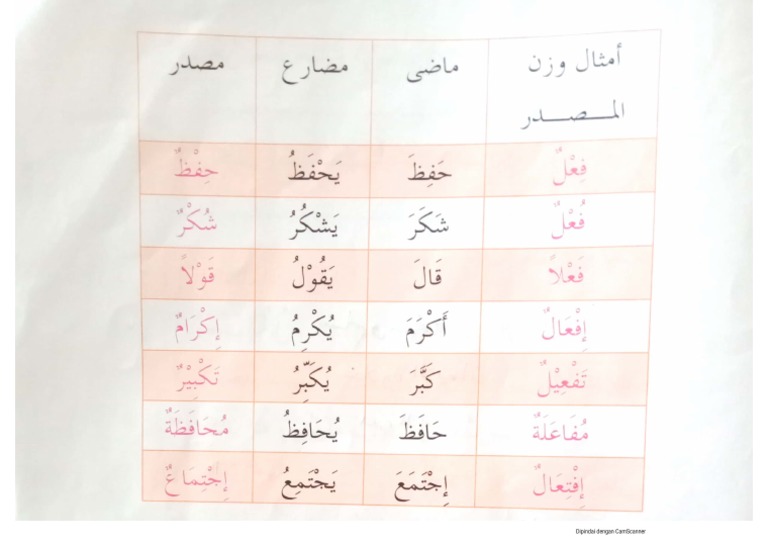 أمثال وزن المـــصـــدر ماضى مضارع مصدر
فِعْلٌ حَفِظَ يَحْفَظُ حِفْظٌ
فُعْلٌ شَكَرَ يَشْكُرُ شُكْرٌ
فَعْلاً قَالَ يَقُوْلُ قَوْلاً
إِفْعَالٌ أَكْرَمَ يُكْرِمُ إِكْرَامٌ
تَفْعِيْلٌ كَبَّرَ يُكَبِّرُ تَكْبِيْرٌ
مُفَاعَلَةٌ حَافَظَ يُحَافِظُ مُحَافَظَةٌ
إِفْتِعَالٌ إِجْتَمَعَ يَجْتَمِعُ إِجْتِمَاعٌ
Dipindai dengan CamScanner